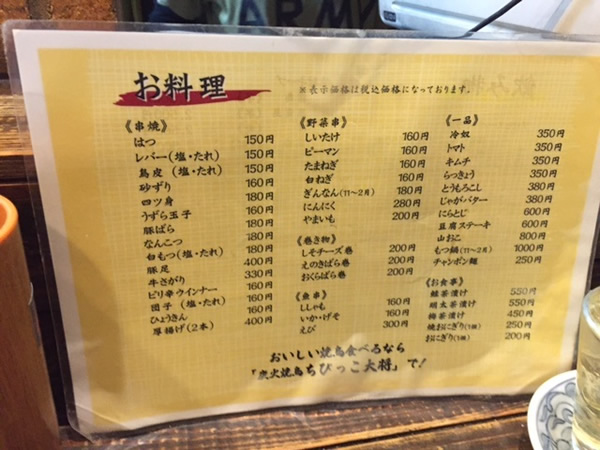 お料理
※表示価格は税込価格になっております。
《串焼》
はつ 150円
レバー(塩・たれ) 150円
鳥皮(塩・たれ) 150円
砂ずり 160円
四ツ身 180円
うずら玉子 160円
豚ばら 180円
なんこつ 180円
白もつ(塩・たれ) 180円
豚足 400円
牛さがり 330円
ピリ辛ウインナー 160円
団子(塩・たれ) 160円
ひょうきん 160円
厚揚げ(2本) 400円
《野菜串》
しいたけ 160円
ピーマン 160円
たまねぎ 160円
白ねぎ 160円
ぎんなん(11〜2月) 180円
にんにく 280円
やまいも 200円
《巻き物》
しそチーズ巻 200円
えのきばら巻 200円
おくらばら巻 200円
《魚串》
ししゃも 160円
いか・げそ 160円
えび 300円
《一品》
冷奴 350円
トマト 350円
キムチ 350円
らっきょう 350円
とうもろこし 380円
じゃがバター 380円
にらとじ 600円
豆腐ステーキ 600円
山おこ 800円
もつ鍋(11〜2月) 1000円
チャンポン麺 250円
《お食事》
鮭茶漬け 550円
明太茶漬け 550円
梅茶漬け 450円
焼おにぎり(1個) 250円
おにぎり(1個) 200円
おいしい焼鳥食べるなら
「炭火焼鳥ちびっこ大将」で!